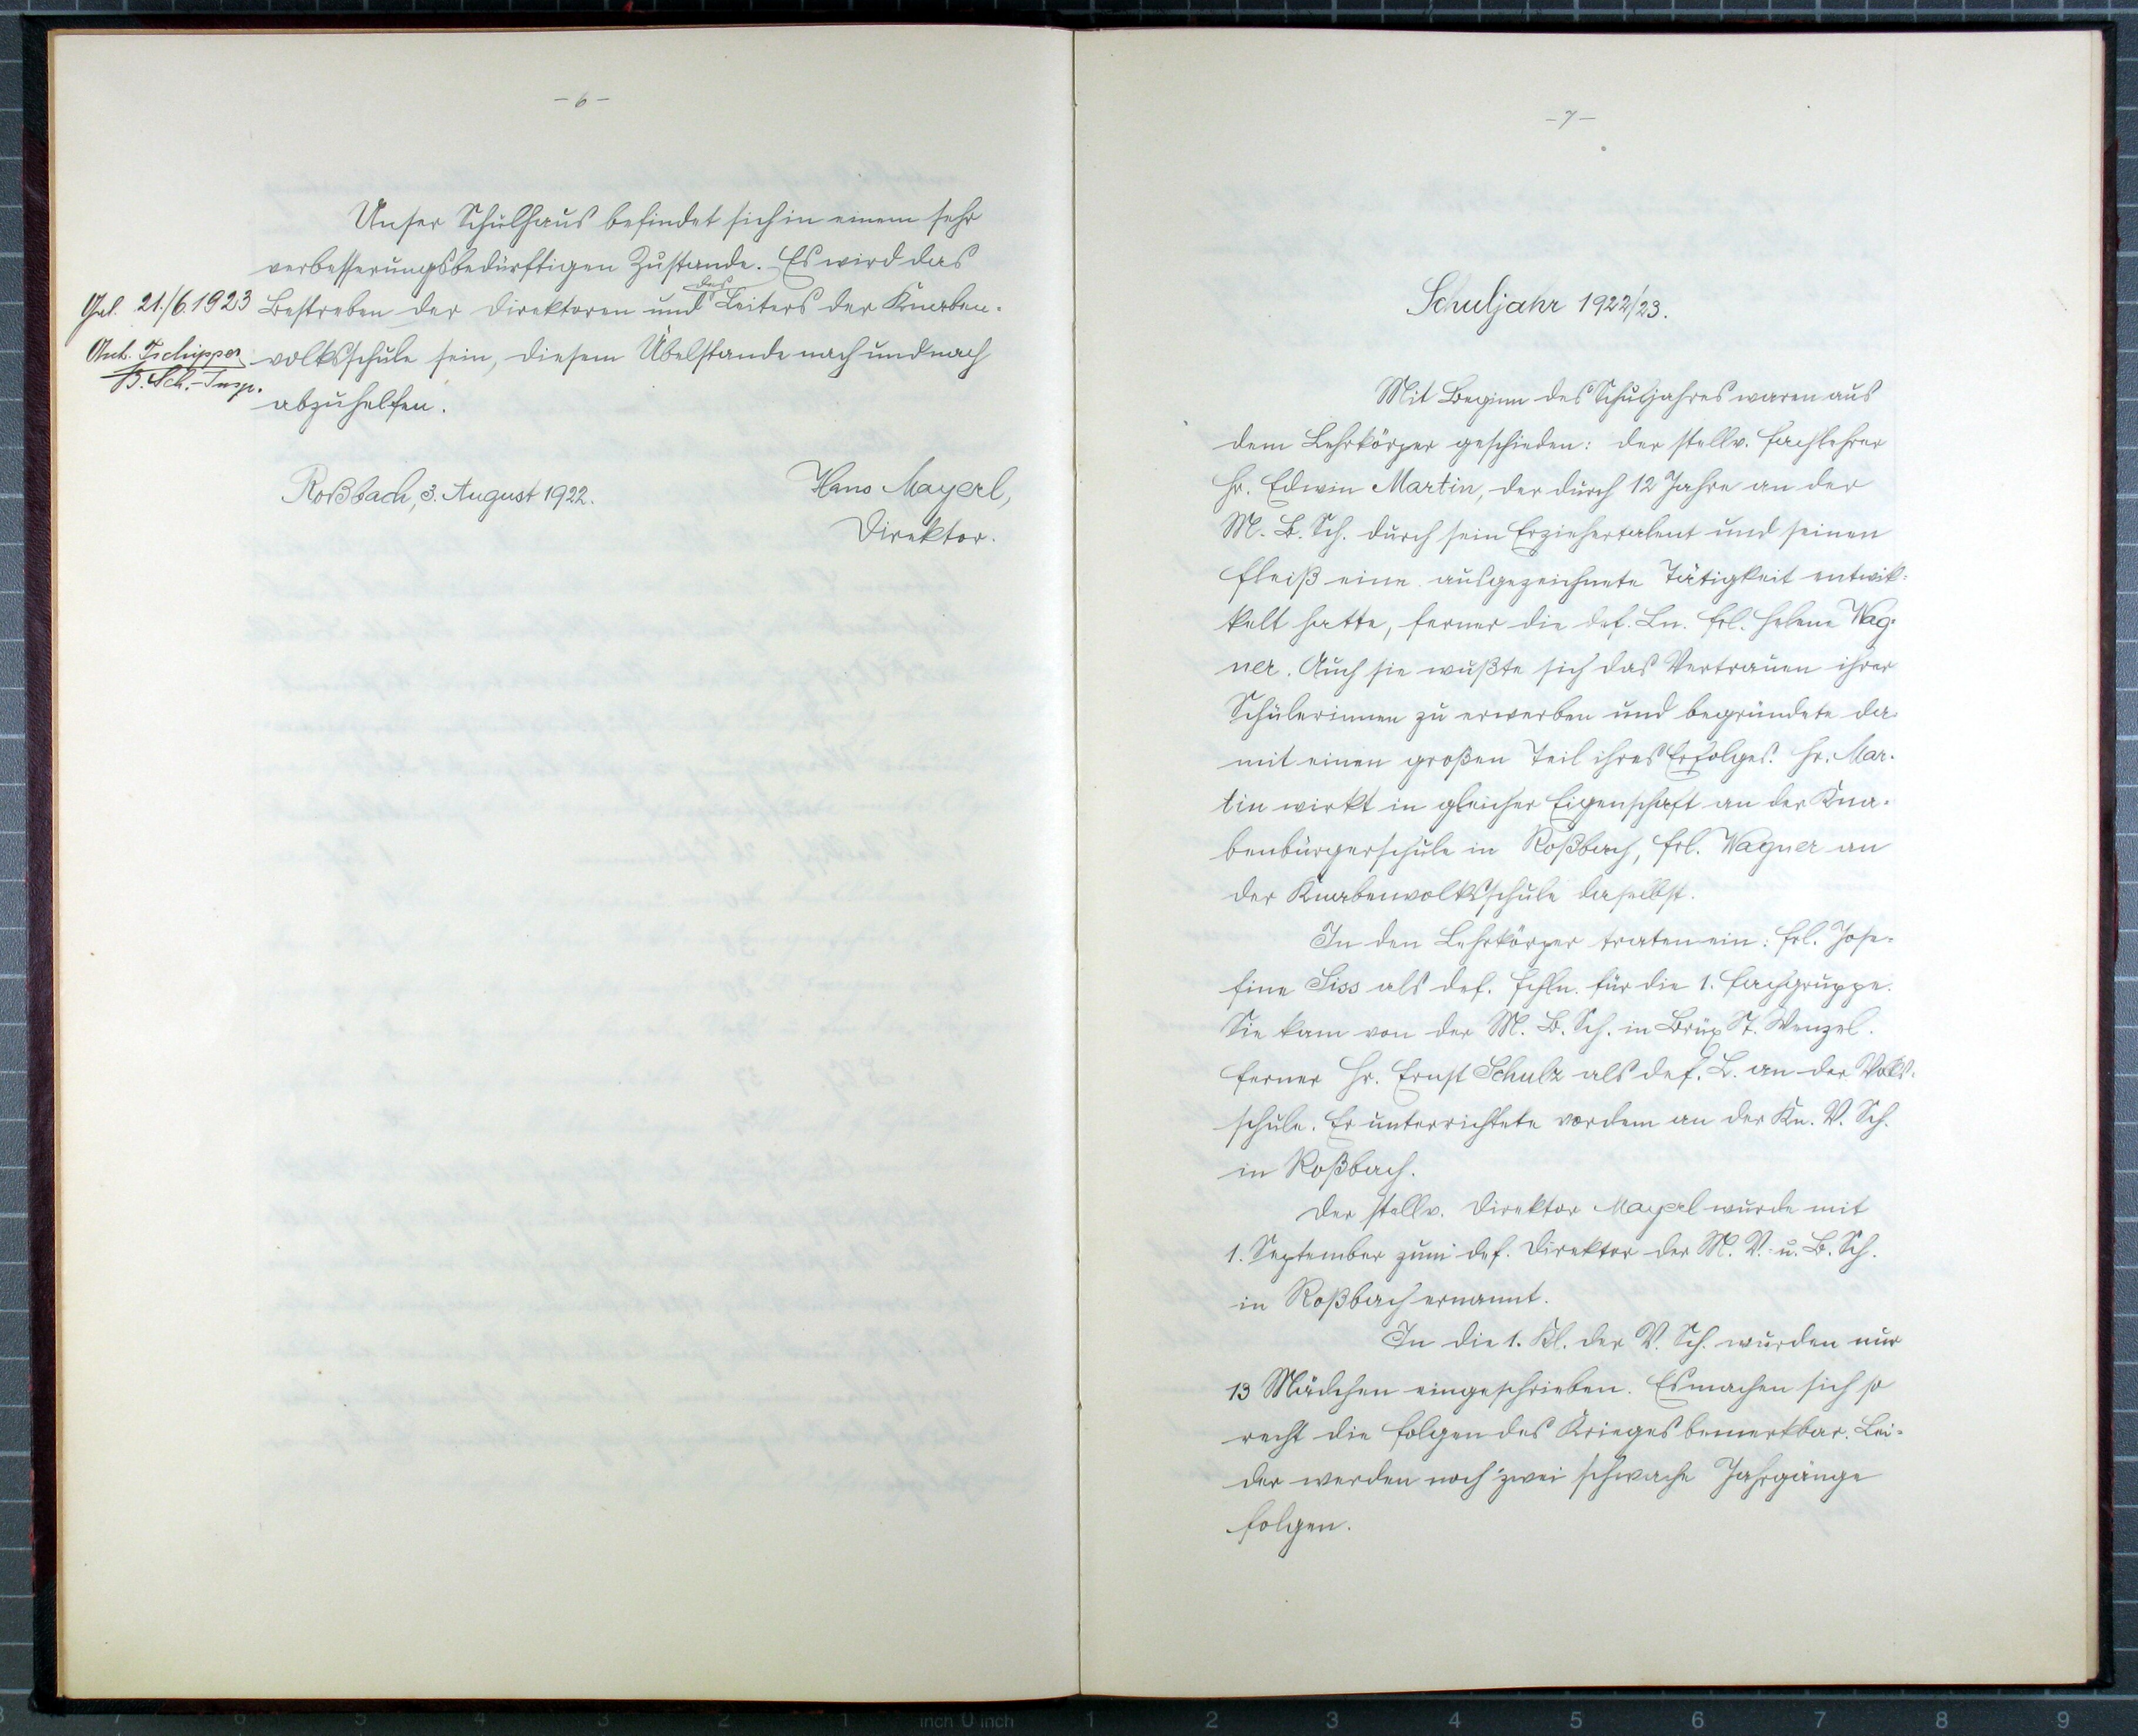 - 6 -
Unser Schulhaus befindet sich in einem sehr
verbesserungsbedürftigen Zustande. Es wird das
des
Bestreben der Direktoren und Leiters der Knaben-
volksschule sein, diesem Übelstande nach und nach
abzuhelfen.
Gel. 21./6.1923
Ant. Tschipper
B. Sch.-Insp.
Roßbach, 3. August 1922.
Hans Mayerl,
Direktor.
- 7 -
Schuljahr 1922/23.
Mit Beginn des Schuljahres waren aus
dem Lehrkörper geschieden: der stellv. Fachlehrer
Hr. Edwin Martin, der durch 12 Jahre an der
M. B. Sch. durch sein Erziehertalent und seinen
Fleiß eine ausgezeichnete Tätigkeit entwik-
kelt hatte, ferner die def. Ln. Frl. Helene Wag-
ner. Auch sie wußte sich das Vertrauen ihrer
Schülerinnen zu erwerben und begründete da-
mit einen großen Teil ihres Erfolges. Hr. Mar-
tin wirkt in gleicher Eigenschaft an der Kna-
benbürgerschule in Roßbach, Frl. Wagner an
der Knabenvolksschule daselbst.
In den Lehrkörper traten ein: Frl. Jose-
fine Siss als def. Fchln. für die 1. Fachgruppe.
Sie kam von der M. B. Sch. in Brüx St. Wenzel.
Ferner Hr. Ernst Schulz als def. L. an der Volks-
schule. Er unterrichtete vordem an der Kn. V. Sch.
in Roßbach.
Der stellv. Direktor Mayerl wurde mit
1. September zum def. Direktor der M. V.- u. B. Sch.
in Roßbach ernannt.
In die 1. Kl. der V. Sch. wurden nur
13 Mädchen eingeschrieben. Es machen sich so
recht die Folgen des Krieges bemerkbar. Lei-
der werden noch zwei schwache Jahrgänge
folgen.
inch 0 inch
7 6 5 4 3 2 1 1 2 3 4 5 6 7 8 9